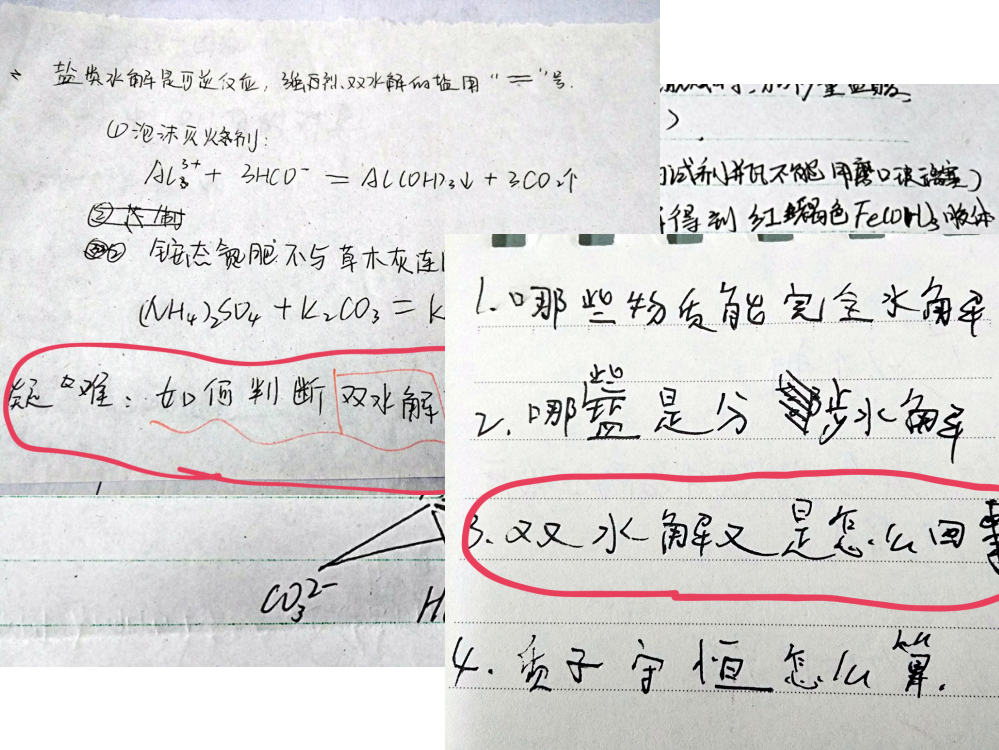 盐类水解是可逆反应，强烈双水解的盐用"＝"号.
①泡沫灭火器剂:
Al³⁺ + 3HCO⁻ = Al(OH)₃↓ + 3CO₂↑
② 铵态氮肥不与草木灰连
(NH₄)₂SO₄ + K₂CO₃ = K
疑难: 如何判断双水解
CO₃²⁻
H
)
试剂瓶不能用磨口玻璃塞)
得到红褐色Fe(OH)₃胶体
1.哪些物质能完全水解
2.哪些盐是分步水解
3.双水解又是怎么回事
4.质子守恒怎么算.